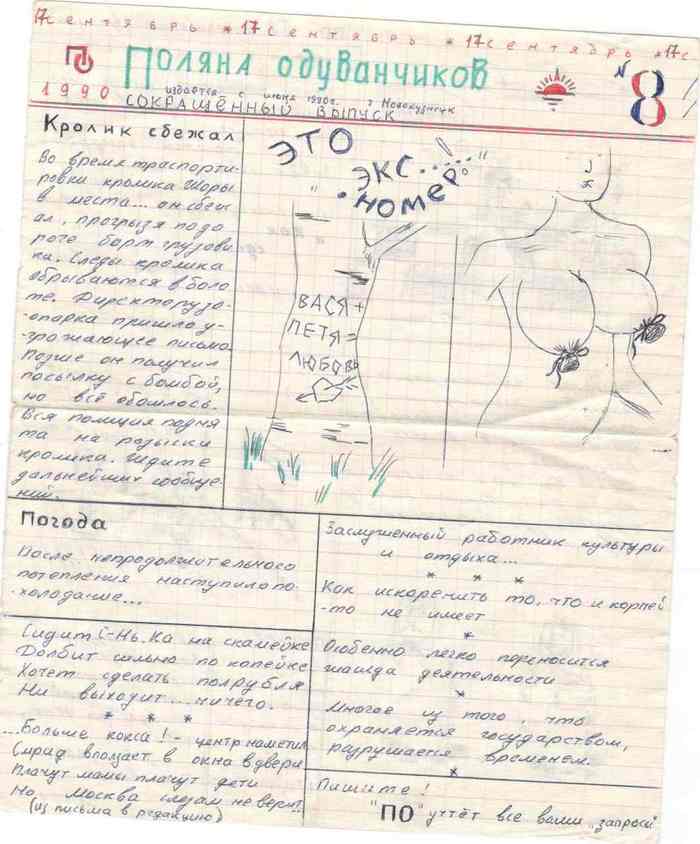 17 сентябрь * 17 сентябрь * 17 сентябрь * 17 с
ПО
Поляна одуванчиков
N 8
1990
издаётся с июня 1990 г. г Новокузнецк
СОКРАЩЁННЫЙ ВЫПУСК
Кролик сбежал
Во время траспорти-
ровки кролика Жоры
в места... он сбеж
ал, прогрызя по до
роге борт грузови
ка. Следы кролика
обрываются в боло
те. Директору зо-
опарка пришло у-
грожающее письмо.
Позже он получил
посылку с бомбой,
но всё обошлось.
Вся полиция подня
та на розыски
кролика. Ждите
дальнейших сообще-
ний.
ЭТО
"ЭКС....."
номер.
ВАСЯ +
ПЕТЯ =
ЛЮБОВЬ
Погода
После непродолжительного
потепления наступило по-
холодание...
Сидит на скамейке
Долбит сильно по копейке
Хочет сделать полрубля
Ни выходит... ничего.
* * *
...Больше кокса! - центр наметил
Смрад вползает в окна в двери
Плачут мамы плачут дети
Но, Москва слезам не верит.
(из письма в редакцию)
Заслушенный работник культуры
и отдыха...
* * *
Как искоренить то, что и корней
-то не имеет
*
Особенно легко переносится
жажда деятельности
*
Многое из того, что
охраняется государством,
разрушается временем.
*
Пишите!
"ПО" учтёт все ваши "запросы"